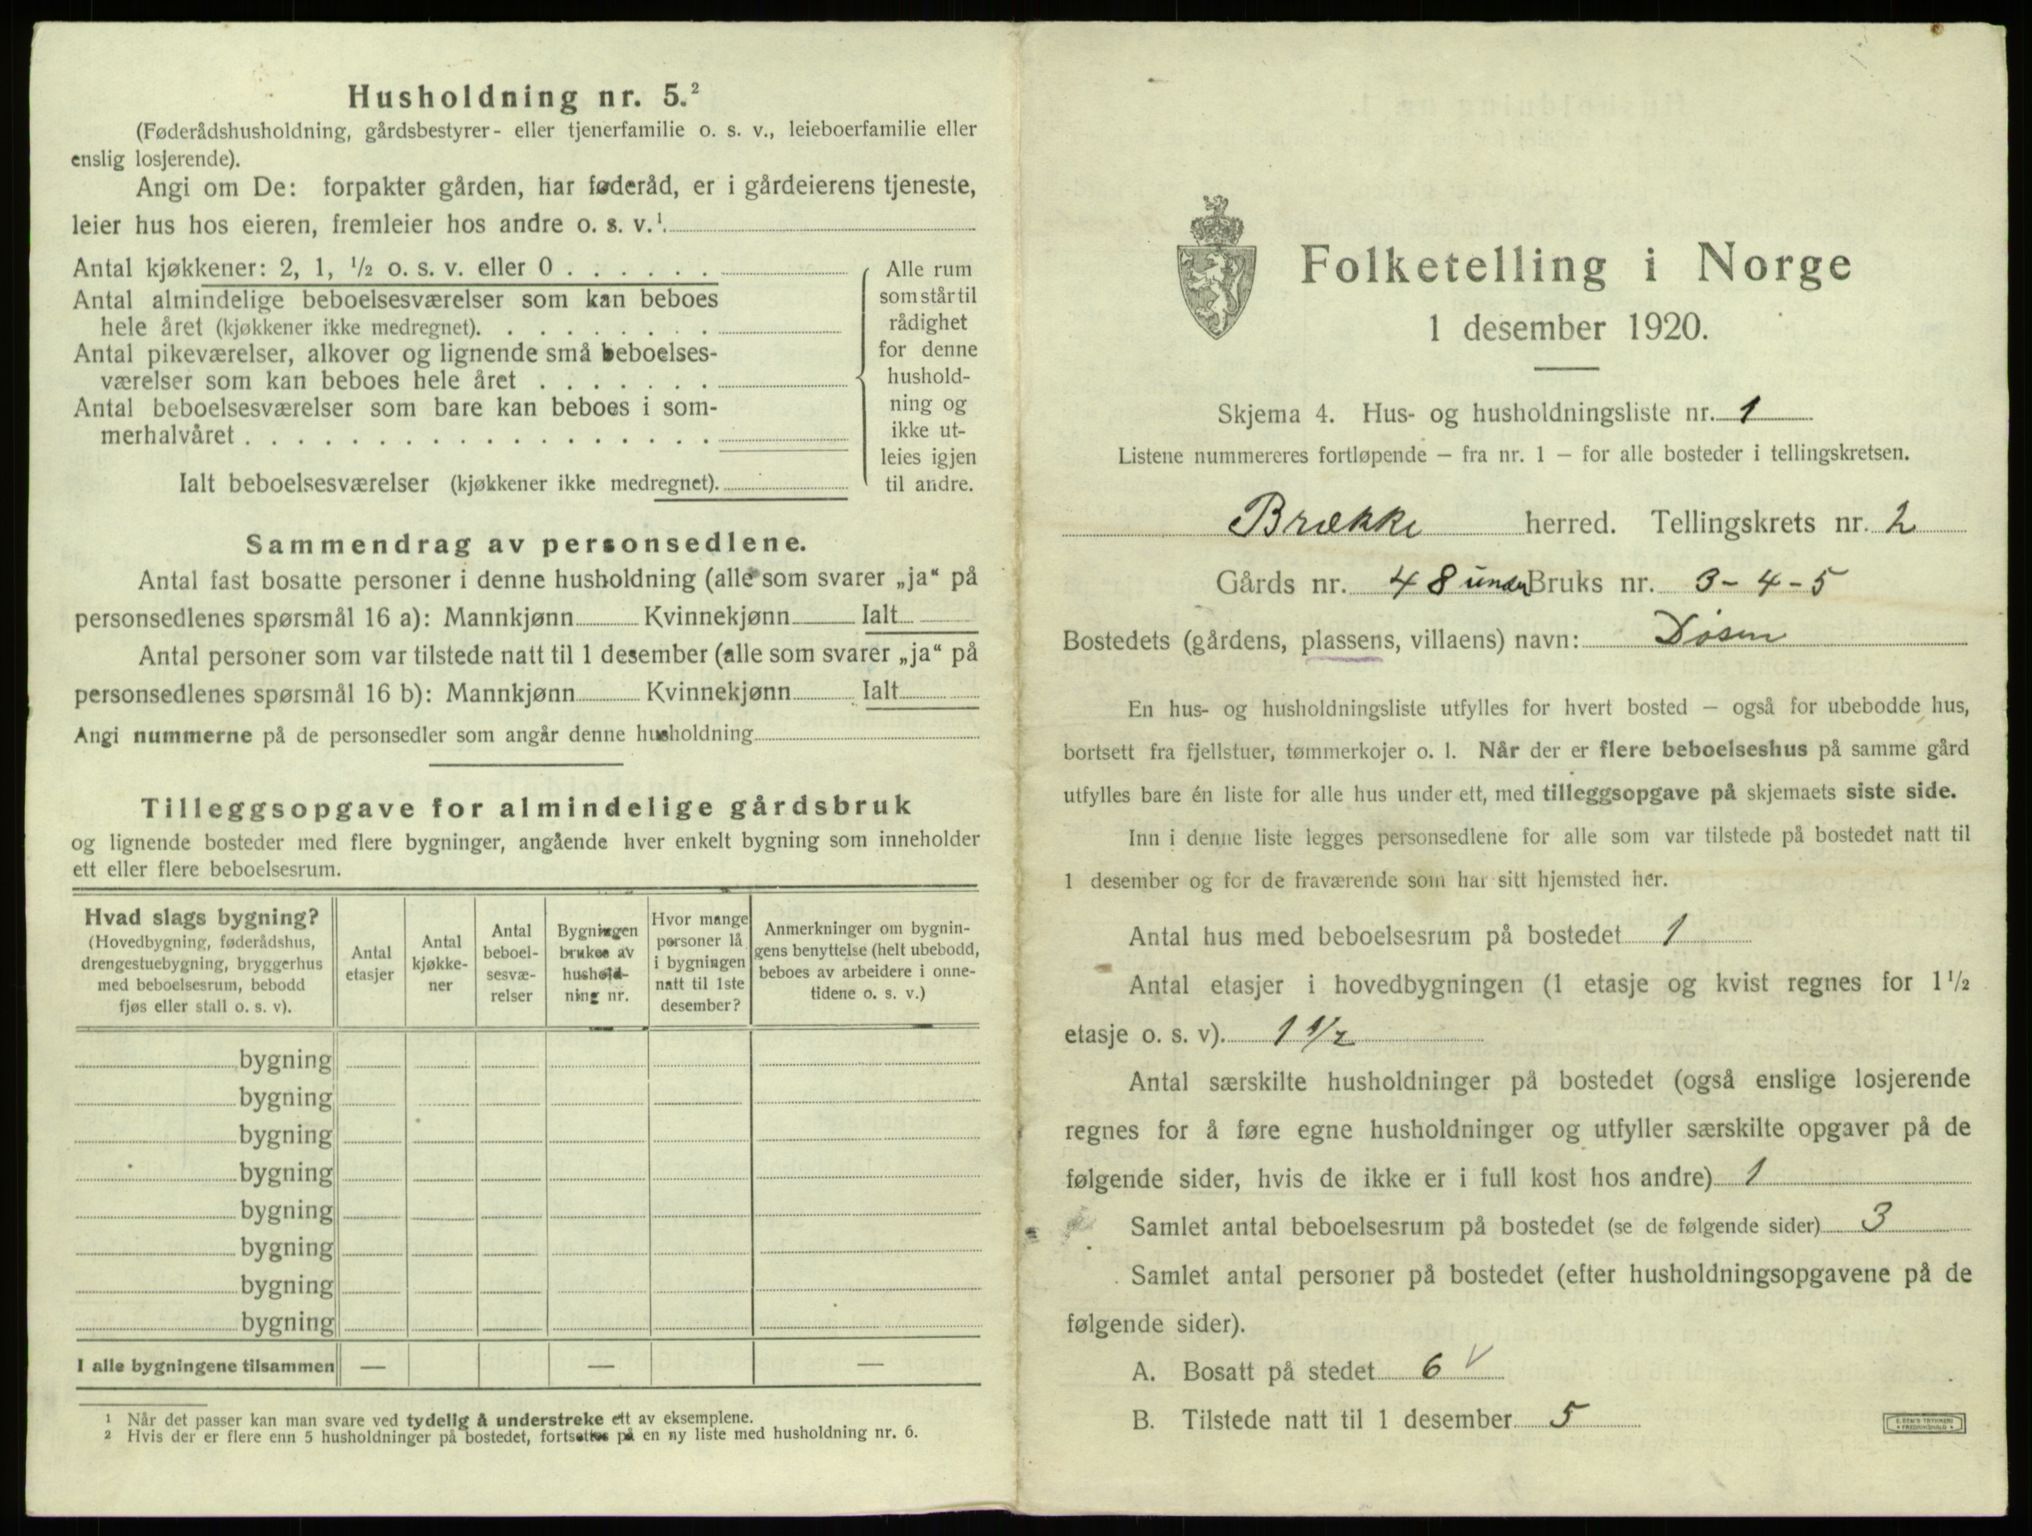 Husholdning nr. 5.²
(Føderådshusholdning, gårdsbestyrer- eller tjenerfamilie o. s. v., leieboerfamilie eller
enslig losjerende).
Angi om De: forpakter gården, har føderåd, er i gårdeierens tjeneste,
leier hus hos eieren, fremleier hos andre o. s. v.¹.
Antal kjøkkener: 2, 1, ½ o. s. v. eller 0 . . . . . .
Antal almindelige beboelsesværelser som kan beboes
hele året (kjøkkener ikke medregnet). . . . . . . . .
Antal pikeværelser, alkover og lignende små beboelses-
værelser som kan beboes hele året . . . . . . .
Antal beboelsesværelser som bare kan beboes i som-
merhalvåret . . . . . . . . . . . . . . . . . .
Ialt beboelsesværelser (kjøkkener ikke medregnet).
Alle rum
som står til
rådighet
for denne
hushold-
ning og
ikke ut-
leies igjen
til andre.
Sammendrag av personsedlene.
Antal fast bosatte personer i denne husholdning (alle som svarer „ja“ på
personsedlenes spørsmål 16 a): Mannkjønn Kvinnekjønn Ialt
Antal personer som var tilstede natt til 1 desember (alle som svarer „ja“ på
personsedlenes spørsmål 16 b): Mannkjønn Kvinnekjønn Ialt
Angi nummerne på de personsedler som angår denne husholdning
Tilleggsopgave for almindelige gårdsbruk
og lignende bosteder med flere bygninger, angående hver enkelt bygning som inneholder
ett eller flere beboelsesrum.
Hvad slags bygning?
(Hovedbygning, føderådshus,
drengestuebygning, bryggerhus
med beboelsesrum, bebodd
fjøs eller stall o. s. v).
Antal
etasjer
Antal
kjøkke-
ner
Antal
beboel-
sesvæ-
relser
Bygningen
brukes av
hushold-
ning nr.
Hvor mange
personer lå
i bygningen
natt til 1ste
desember?
Anmerkninger om bygnin-
gens benyttelse (helt ubebodd,
beboes av arbeidere i onne-
tidene o. s. v.)
bygning
bygning
bygning
bygning
bygning
bygning
bygning
bygning
I alle bygningene tilsammen — — —
¹ Når det passer kan man svare ved tydelig å understreke ett av eksemplene.
² Hvis der er flere enn 5 husholdninger på bostedet, fortsettes på en ny liste med husholdning nr. 6.
Folketelling i Norge
1 desember 1920.
Skjema 4. Hus- og husholdningsliste nr. 1
Listene nummereres fortløpende — fra nr. 1 — for alle bosteder i tellingskretsen.
Brække herred. Tellingskrets nr. 2
Gårds nr. 48 under Bruks nr. 3-4-5
Bostedets (gårdens, plassens, villaens) navn: Døsen
En hus- og husholdningsliste utfylles for hvert bosted — også for ubebodde hus,
bortsett fra fjellstuer, tømmerkojer o. l. Når der er flere beboelseshus på samme gård
utfylles bare én liste for alle hus under ett, med tilleggsopgave på skjemaets siste side.
Inn i denne liste legges personsedlene for alle som var tilstede på bostedet natt til
1 desember og for de fraværende som har sitt hjemsted her.
Antal hus med beboelsesrum på bostedet 1
Antal etasjer i hovedbygningen (1 etasje og kvist regnes for 1½
etasje o. s. v). 1½
Antal særskilte husholdninger på bostedet (også enslige losjerende
regnes for å føre egne husholdninger og utfyller særskilte opgaver på de
følgende sider, hvis de ikke er i full kost hos andre) 1
Samlet antal beboelsesrum på bostedet (se de følgende sider) 3
Samlet antal personer på bostedet (efter husholdningsopgavene på de
følgende sider).
A. Bosatt på stedet 6 √
B. Tilstede natt til 1 desember 5